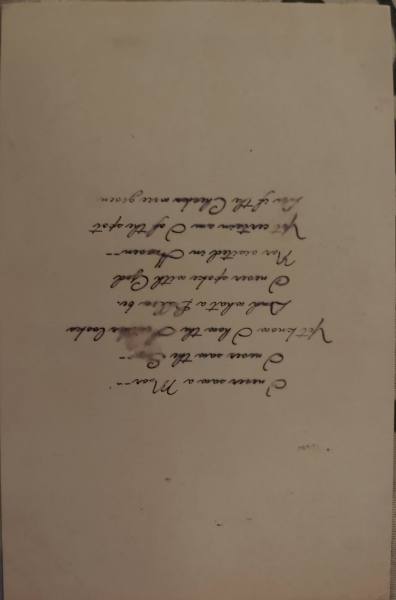 I never saw a Moor--
I never saw the Sea--
Yet know I how the looks
And what a Billow be
I never spoke with God
Nor visited in Heaven--
Yet certain am I of the spot
As if the Checks were given